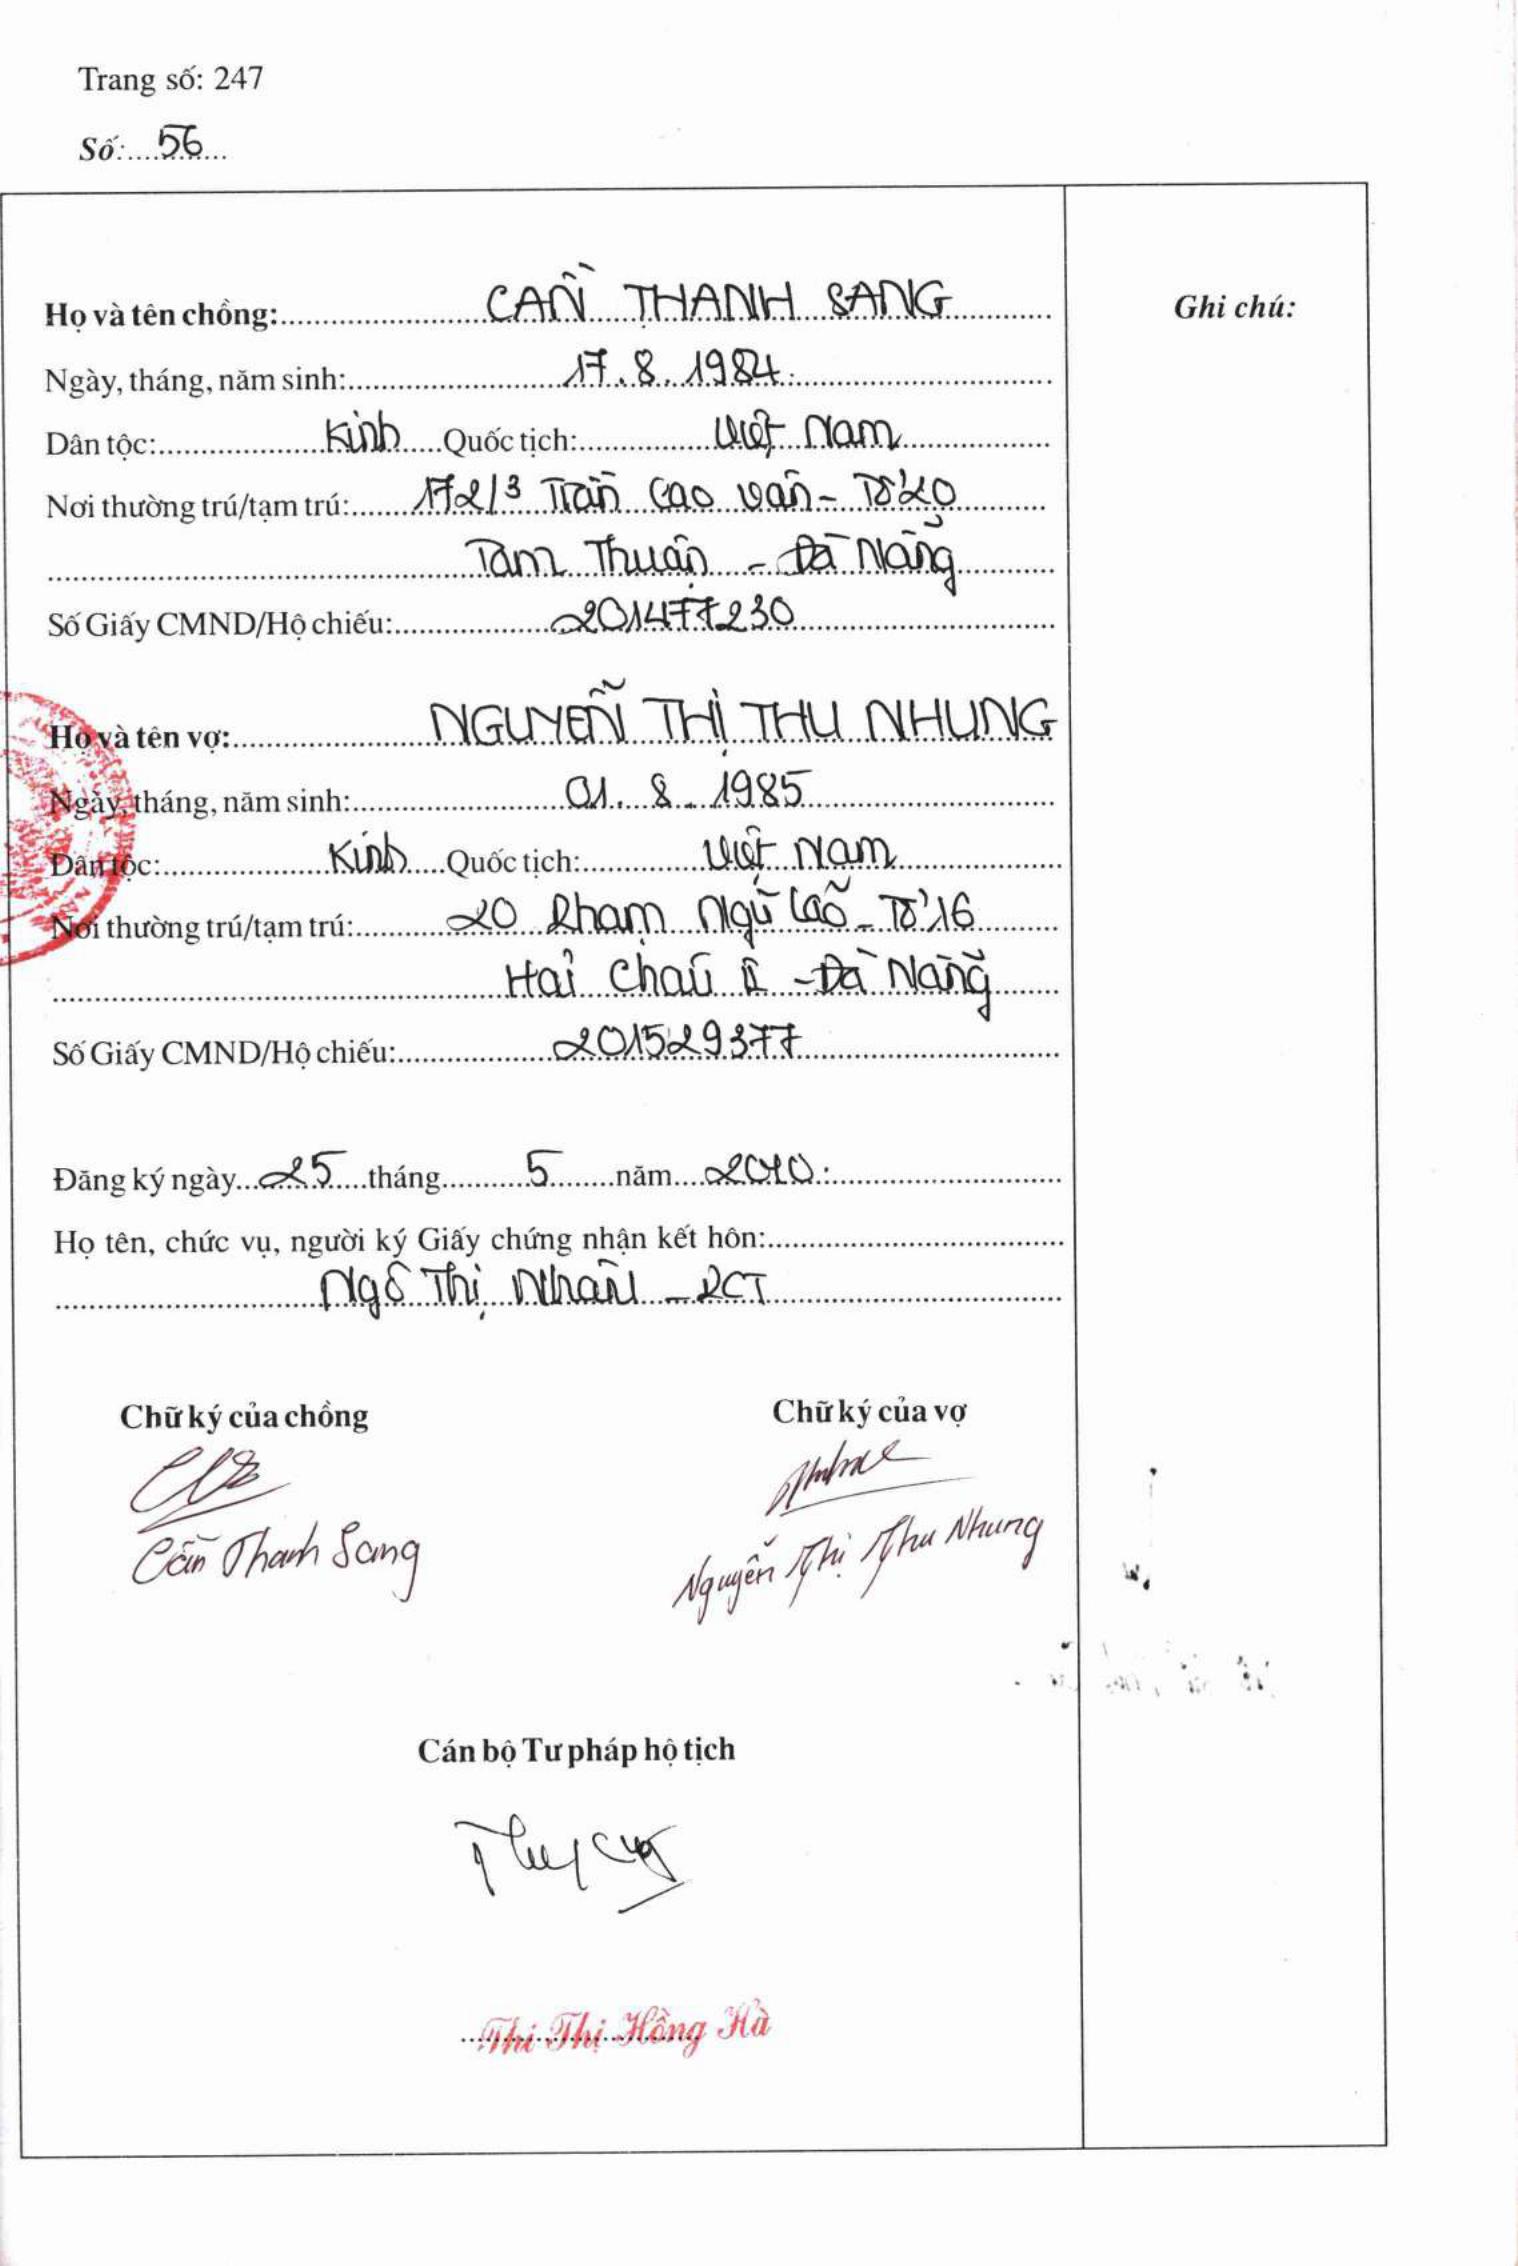 Trang số: 247
Số: 56
Họ và tên chồng: CẦN THANH SANG
Ghi chú:
Ngày, tháng, năm sinh: 17.8.1984
Dân tộc: Kinh Quốc tịch: Việt Nam
Nơi thường trú/tạm trú: 172/3 Trần Cao Vân - Tổ 20
Tam Thuận - Đà Nẵng
Số Giấy CMND/Hộ chiếu: 201477230
Họ và tên vợ: NGUYỄN THỊ THU NHUNG
Ngày, tháng, năm sinh: 01.8.1985
Dân tộc: Kinh Quốc tịch: Việt Nam
Nơi thường trú/tạm trú: 20 Phạm Ngũ Lão - Tổ 16
Hải Châu I - Đà Nẵng
Số Giấy CMND/Hộ chiếu: 201529377
Đăng ký ngày 25 tháng 5 năm 2010
Họ tên, chức vụ, người ký Giấy chứng nhận kết hôn:
Ngô Thị Nhân - PCT
Chữ ký của chồng Chữ ký của vợ
Cần Thanh Sang Nguyễn Thị Thu Nhung
Cán bộ Tư pháp hộ tịch
Thi Thị Hồng Hà